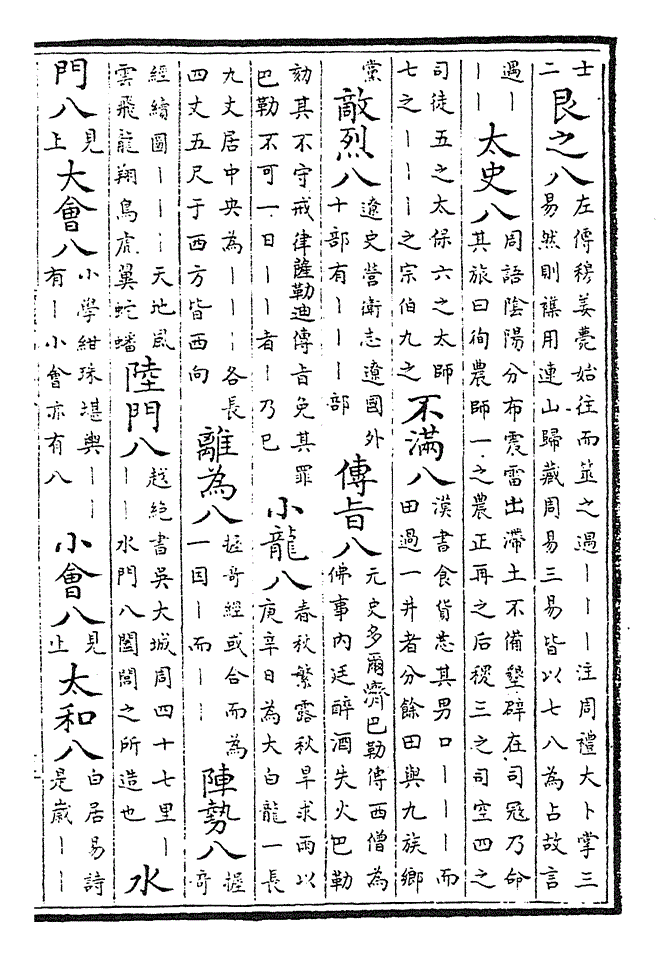 士
二
艮之八
左傳穆姜薨始往而筮之遇丨丨丨注周禮大卜掌三
易然則襍用連山歸藏周易三易皆以七八為占故言
遇丨
丨丨
太史八
周語陰陽分布震雷出滯土不備墾辟在司冦乃命
其旅曰徇農師一之農正再之后稷三之司空四之
司徒五之太保六之太師
七之丨丨丨之宗伯九之
不滿八
漢書食貨志其男口丨丨丨而
田過一井者分餘田與九族鄉
黨
敵烈八
遼史營衛志遼國外
十部有丨丨丨部
傳旨八
元史多爾濟巴勒傳西僧為
佛事內廷醉酒失火巴勒
劾其不守戒律薩勒迪傳旨免其罪
巴勒不可一日丨丨者丨乃已
小龍八
春秋繁露秋旱求雨以
庚辛日為大白龍一長
九丈居中央為丨丨丨各長
四丈五尺于西方皆西向
離為八
握奇經或合而為
一因丨而丨丨
陣勢八
握
奇
經續圖丨丨丨天地風
雲飛龍翔鳥虎翼蛇蟠
陸門八
越絶書吳大城周四十七里丨
丨丨水門八闔閭之所造也
水
門八
見
上
大會八
小學紺珠堪輿丨丨
有丨小會亦有八
小會八
見
上
太和八
白居易詩
是歲丨丨